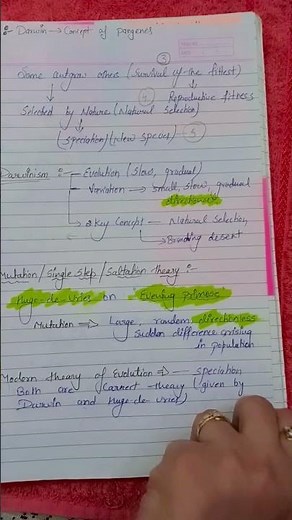 :- Darwin → Concept of pangenes
③
Some outgrow others (Survival of the fittest)
Selected by Nature (Natural Selection)
④ Reproductive fitness
(Speciation) (New species) ⑤
Darwinism :- Evolution (Slow, gradual)
Variation → Small, slow, gradual
directional
2 Key Concept - Natural Selection
→ Branding desert
Mutation / Single Step / Saltation Theory :-
Hugo-de-vries on Evening primose
Mutation ⇒ Large, random directionless
Sudden difference arising
in population
Modern theory of Evolution ⇒ - speciation
Both are Correct theory (given by
Darwin and Hugo-de-vries)